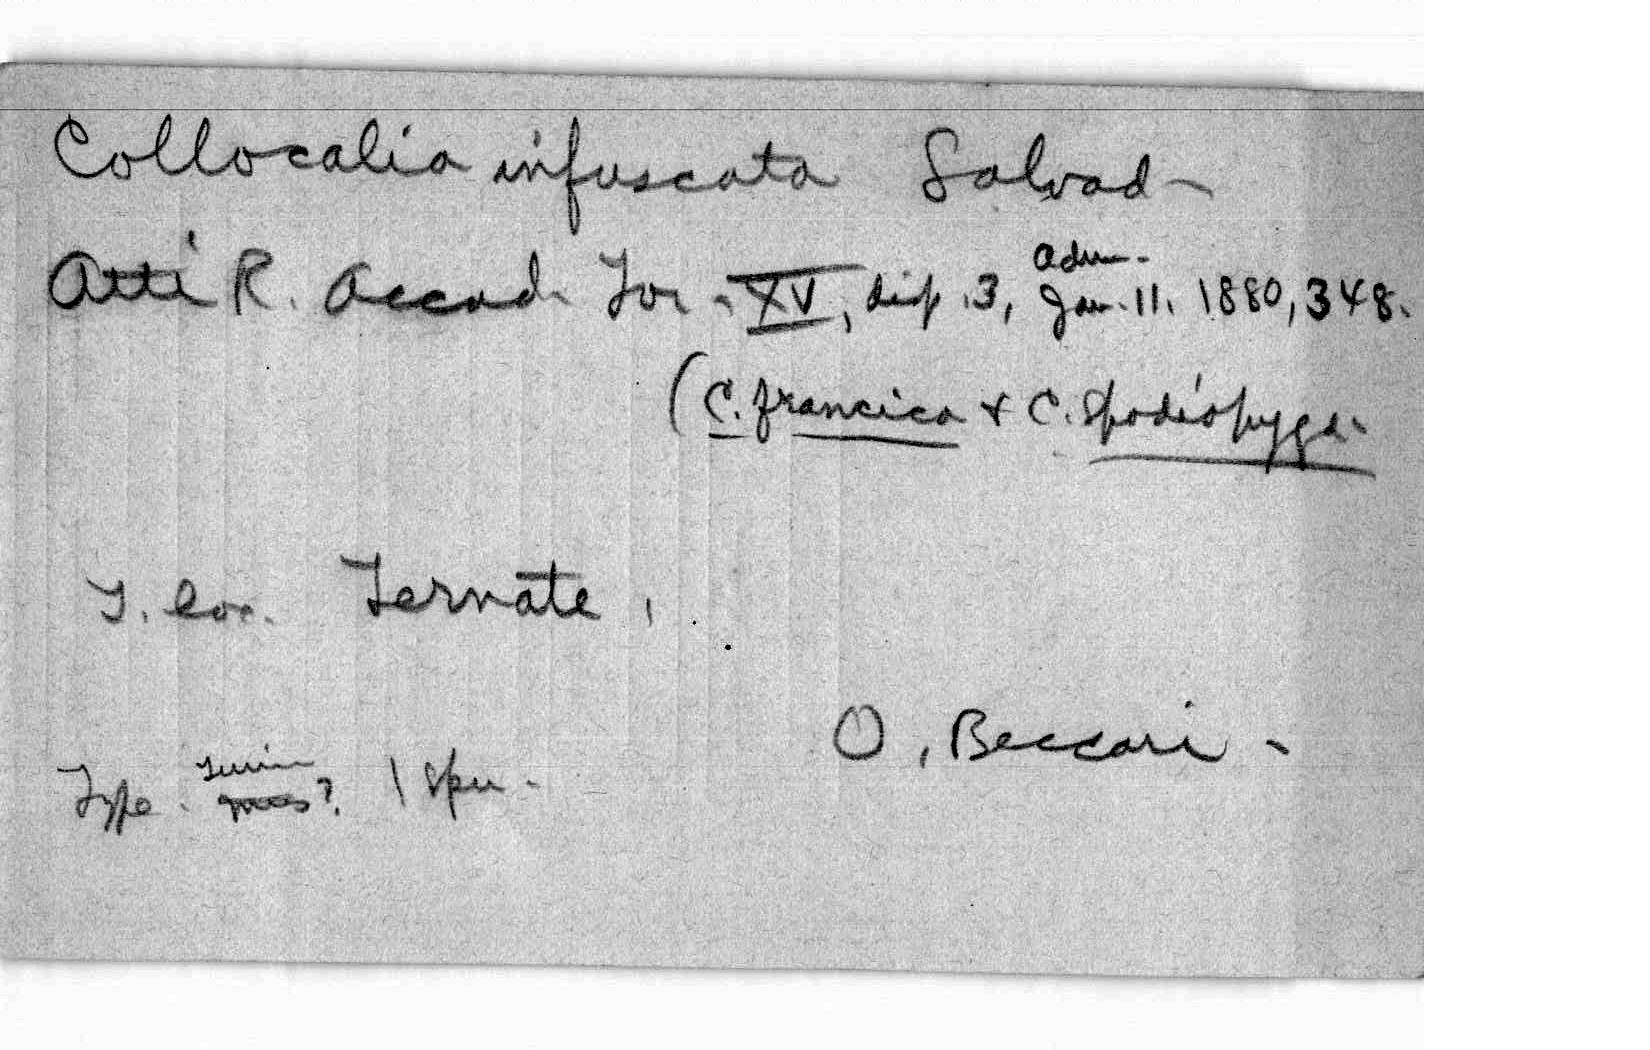 Collocalia infuscata Salvad.
Atti R. Accad. Tor. XV, disp. 3, Adun. Jan. 11. 1880, 348.
(C. francica & C. spodiopyga.
T. loc. Ternate,
O. Beccari.
Type. Turin ?. 1 spec.